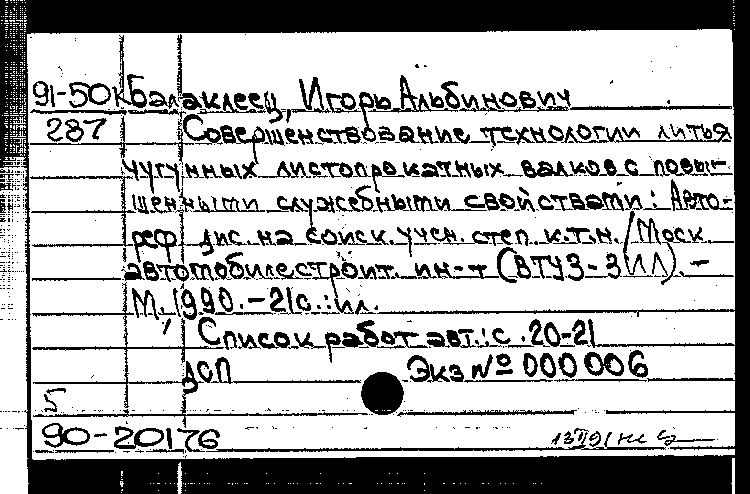 91-50к Балаклеец, Игорь Альбинович
287 Совершенствование технологии литья
чугунных листопрокатных валков с повы-
шенными служебными свойствами: Авто-
реф. дис. на соиск. учен. степ. к.т.н./Моск.
автомобилестроит. ин-т (ВТУЗ-ЗИЛ). –
М., 1990. – 21с.: ил.
Список работ авт.: с. 20-21
ДСП Экз № 000006
5
90-20176 13 II 91